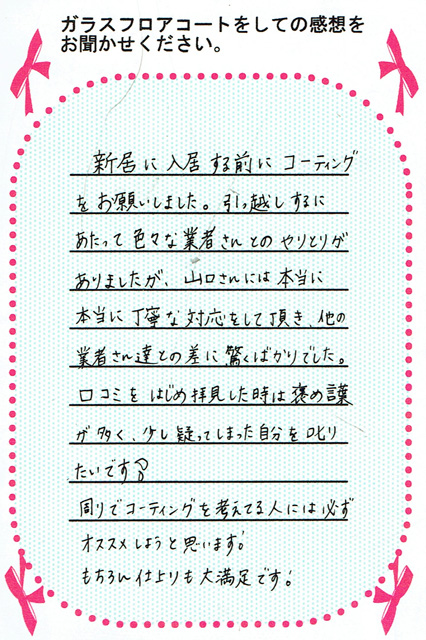 ガラスフロアコートをしての感想を
お聞かせください。
新居に入居する前にコーティング
をお願いしました。引っ越しするに
あたって色々な業者さんとのやりとりが
ありましたが、山口さんには本当に
本当に丁寧な対応をして頂き、他の
業者さん達との差に驚くばかりでした。
口コミをはじめ拝見した時は褒め言葉
が多く、少し疑ってしまった自分を叱り
たいです
周りでコーティングを考えてる人には必ず
オススメしようと思います!
もちろん仕上りも大満足です!